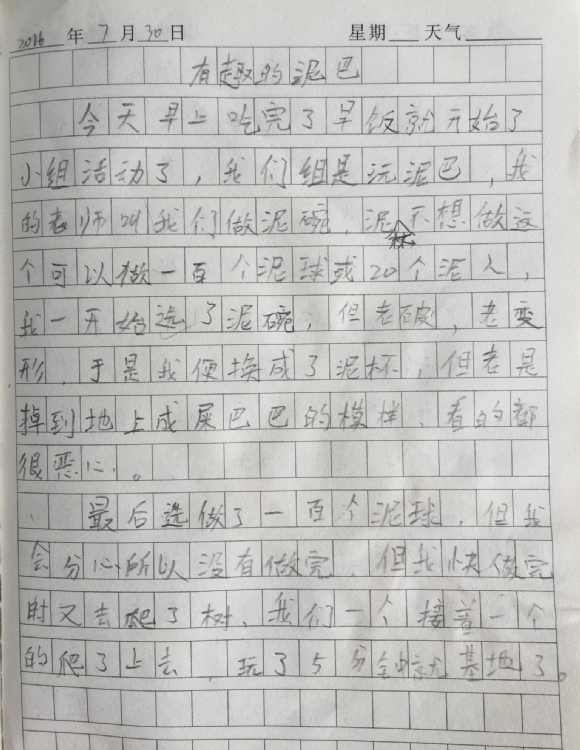 2016年7月30日 星期 天气
有趣的泥巴
今天早上吃完了早饭就开始了
小组活动了，我们组是玩泥巴，我
的老师叫我们做泥碗，泥杯不想做这
个可以做一百个泥球或20个泥人，
我一开始选了泥碗，但老破，老变
形，于是我便换成了泥杯，但老是
掉到地上成屎巴巴的模样，看的都
很恶心。
最后选做了一百个泥球，但我
会分心所以没有做完，但我快做完
时又去爬了树，我们一个接着一个
的爬了上去，玩了5分钟就基地了。